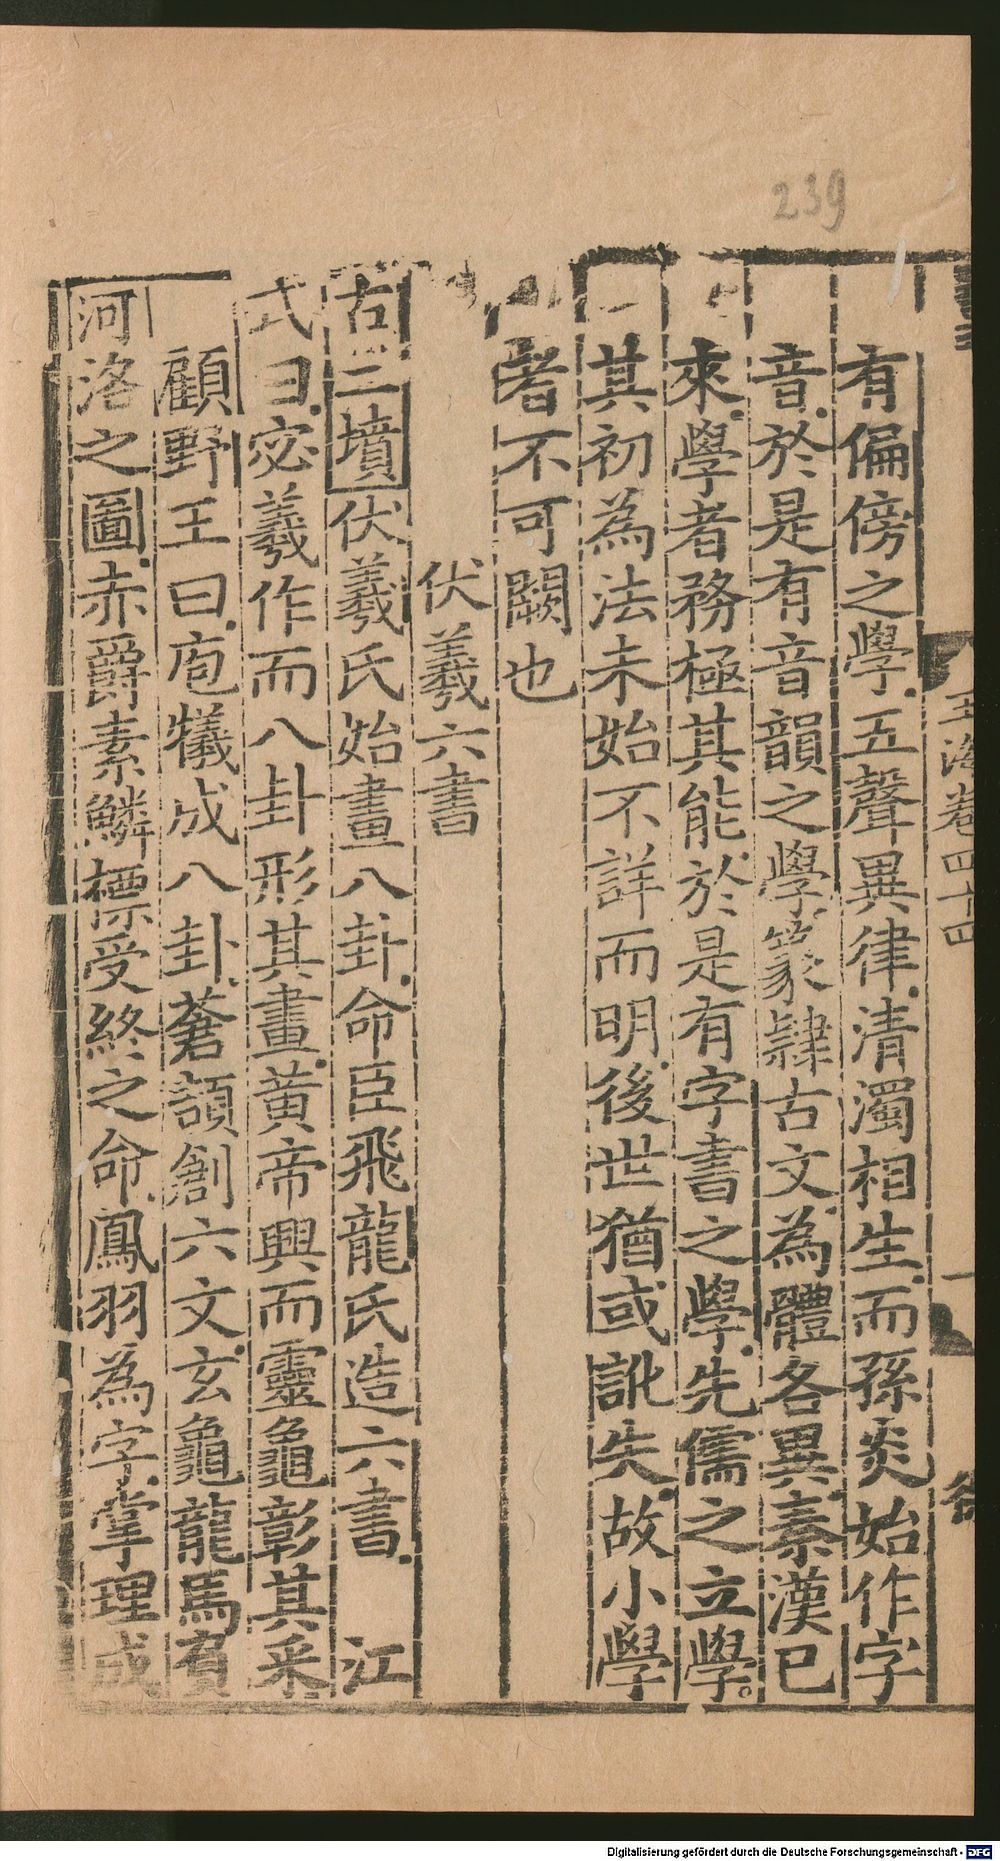 239
玉海卷四十四
有偏傍之學五聲異律清濁相生而孫炎始作字
音於是有音韻之學篆隸古文為體各異秦漢已
來學者務極其能於是有字書之學先儒之立學
其初為法未始不詳而明後世猶或訛失故小學
者不可闕也
伏羲六書
古三墳伏羲氏始畫八卦命臣飛龍氏造六書 江
式曰宓羲作而八卦形其畫黃帝興而靈龜彰其采
顧野王曰庖犧成八卦蒼頡創六文玄龜龍馬負
河洛之圖赤爵素鱗標受終之命鳳羽為字掌理成
Digitalisierung gefördert durch die Deutsche Forschungsgemeinschaft - DFG